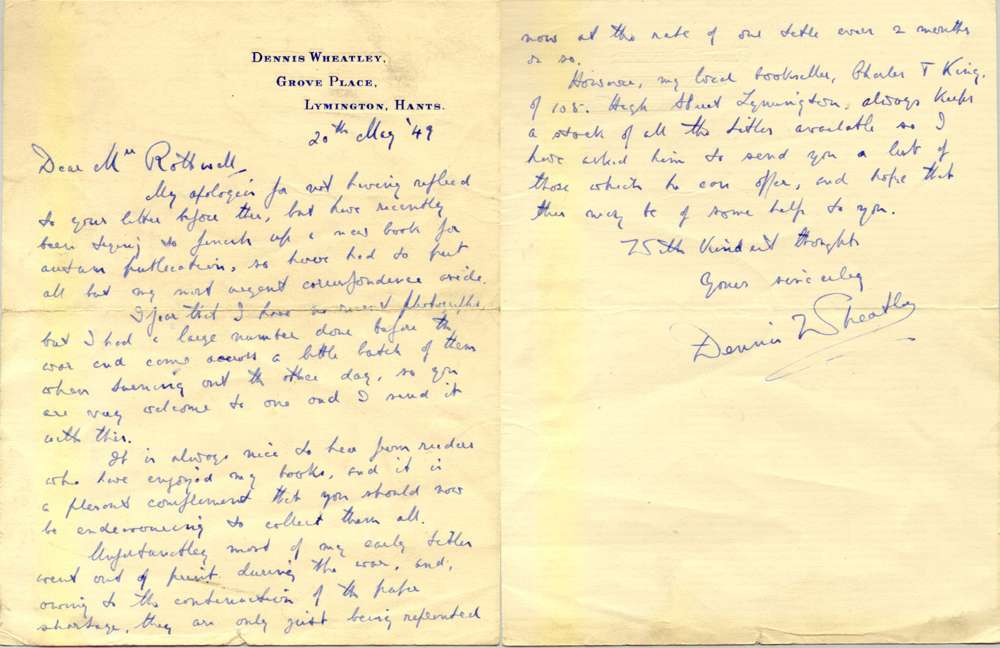 DENNIS WHEATLEY,
GROVE PLACE,
LYMINGTON, HANTS.
20th May '49
Dear Mrs Rothwell,
My apologies for not having replied
to your letter before this, but have recently
been trying to finish up a new book for
autumn publication, so have had to put
all but my most urgent correspondence aside.
I fear that I have no recent photographs
but I had a large number done before the
war and came across a little batch of them
when turning out the other day, so you
are very welcome to one and I send it
with this.
It is always nice to hear from readers
who have enjoyed my books, and it is
a pleasant compliment that you should now
be endeavouring to collect them all.
Unfortunately most of my early titles
went out of print during the war, and,
owing to the continuation of the paper
shortage, they are only just being reprinted
now at the rate of one title every 2 months
or so.
However, my local bookseller, Charles T King,
of 105. High Street Lymington, always keeps
a stock of all the titles available so I
have asked him to send you a list of
those which he can offer, and hope that
this may be of some help to you.
With kindest thoughts
Yours sincerely
Dennis Wheatley